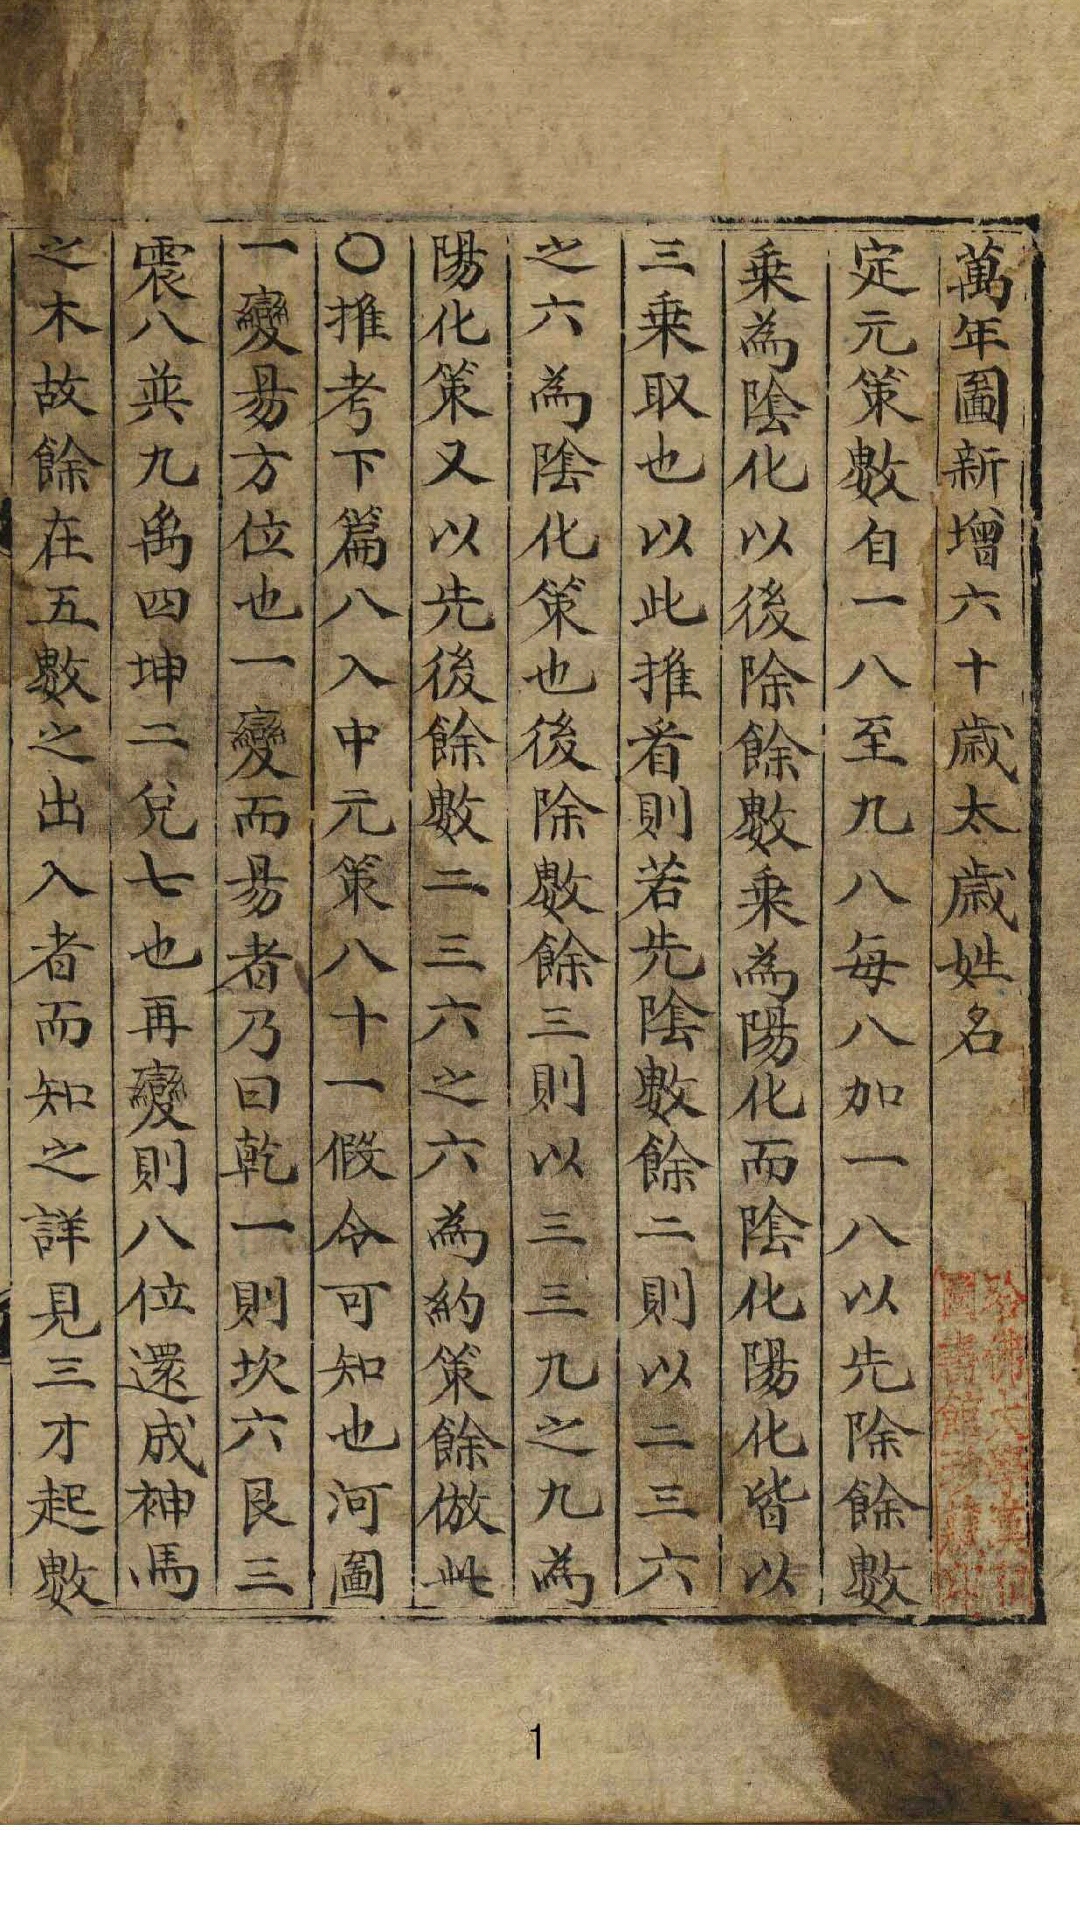 萬年圖新增六十歲太歲姓名
定元策數自一八至九八每八加一八以先除餘數
乗為陰化以後除餘數乗為陽化而陰化陽化皆以
三乗取也以此推看則若先陰數餘二則以二三六
之六為陰化策也後除數餘三則以三三九之九為
陽化策又以先後餘數二三六之六為約策餘倣此
〇推考下篇八入中元策八十一假令可知也河圖
一變易方位也一變而易者乃曰乾一則坎六艮三
震八英九禹四坤二兌七也再變則八位還成神馬
之木故餘在五數之出入者而知之詳見三才起數
哈佛大學漢和
圖書館珍藏印
1